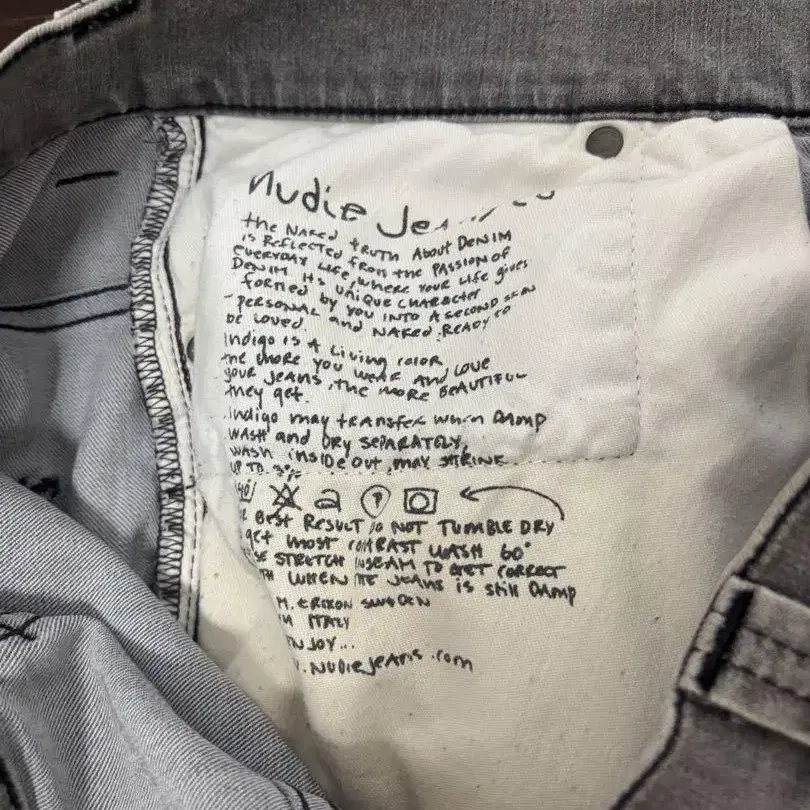 Nudie Je
the NAKED tRUTH About DENIM
is Reflected from the PASSION of
EVERYDAY Life, where YOUR Life gives
DENIM its UNIQUE CHARACTER
formed by you INTO A SECOND SKIN
- PERSONAL and NAKED. READY TO
BE LOVED.
Indigo is A Living color
the more you WEAR AND LOVE
your JEANS, THE MORE BEAUTIFUL
they get.
Indigo may transfer when DAMP
WASH and DRY SEPARATELY,
WASH INSIDE OUT, MAY SHRINK
UP TO 3%
BEST RESULT DO NOT TUMBLE DRY
get MOST CONTRAST WASH 60°
STRETCH INSEAM TO GET CORRECT
WHEN THE JEANS is still DAMP
M. ERIXON SWEDEN
ITALY
NJOY...
.NudieJeans.com